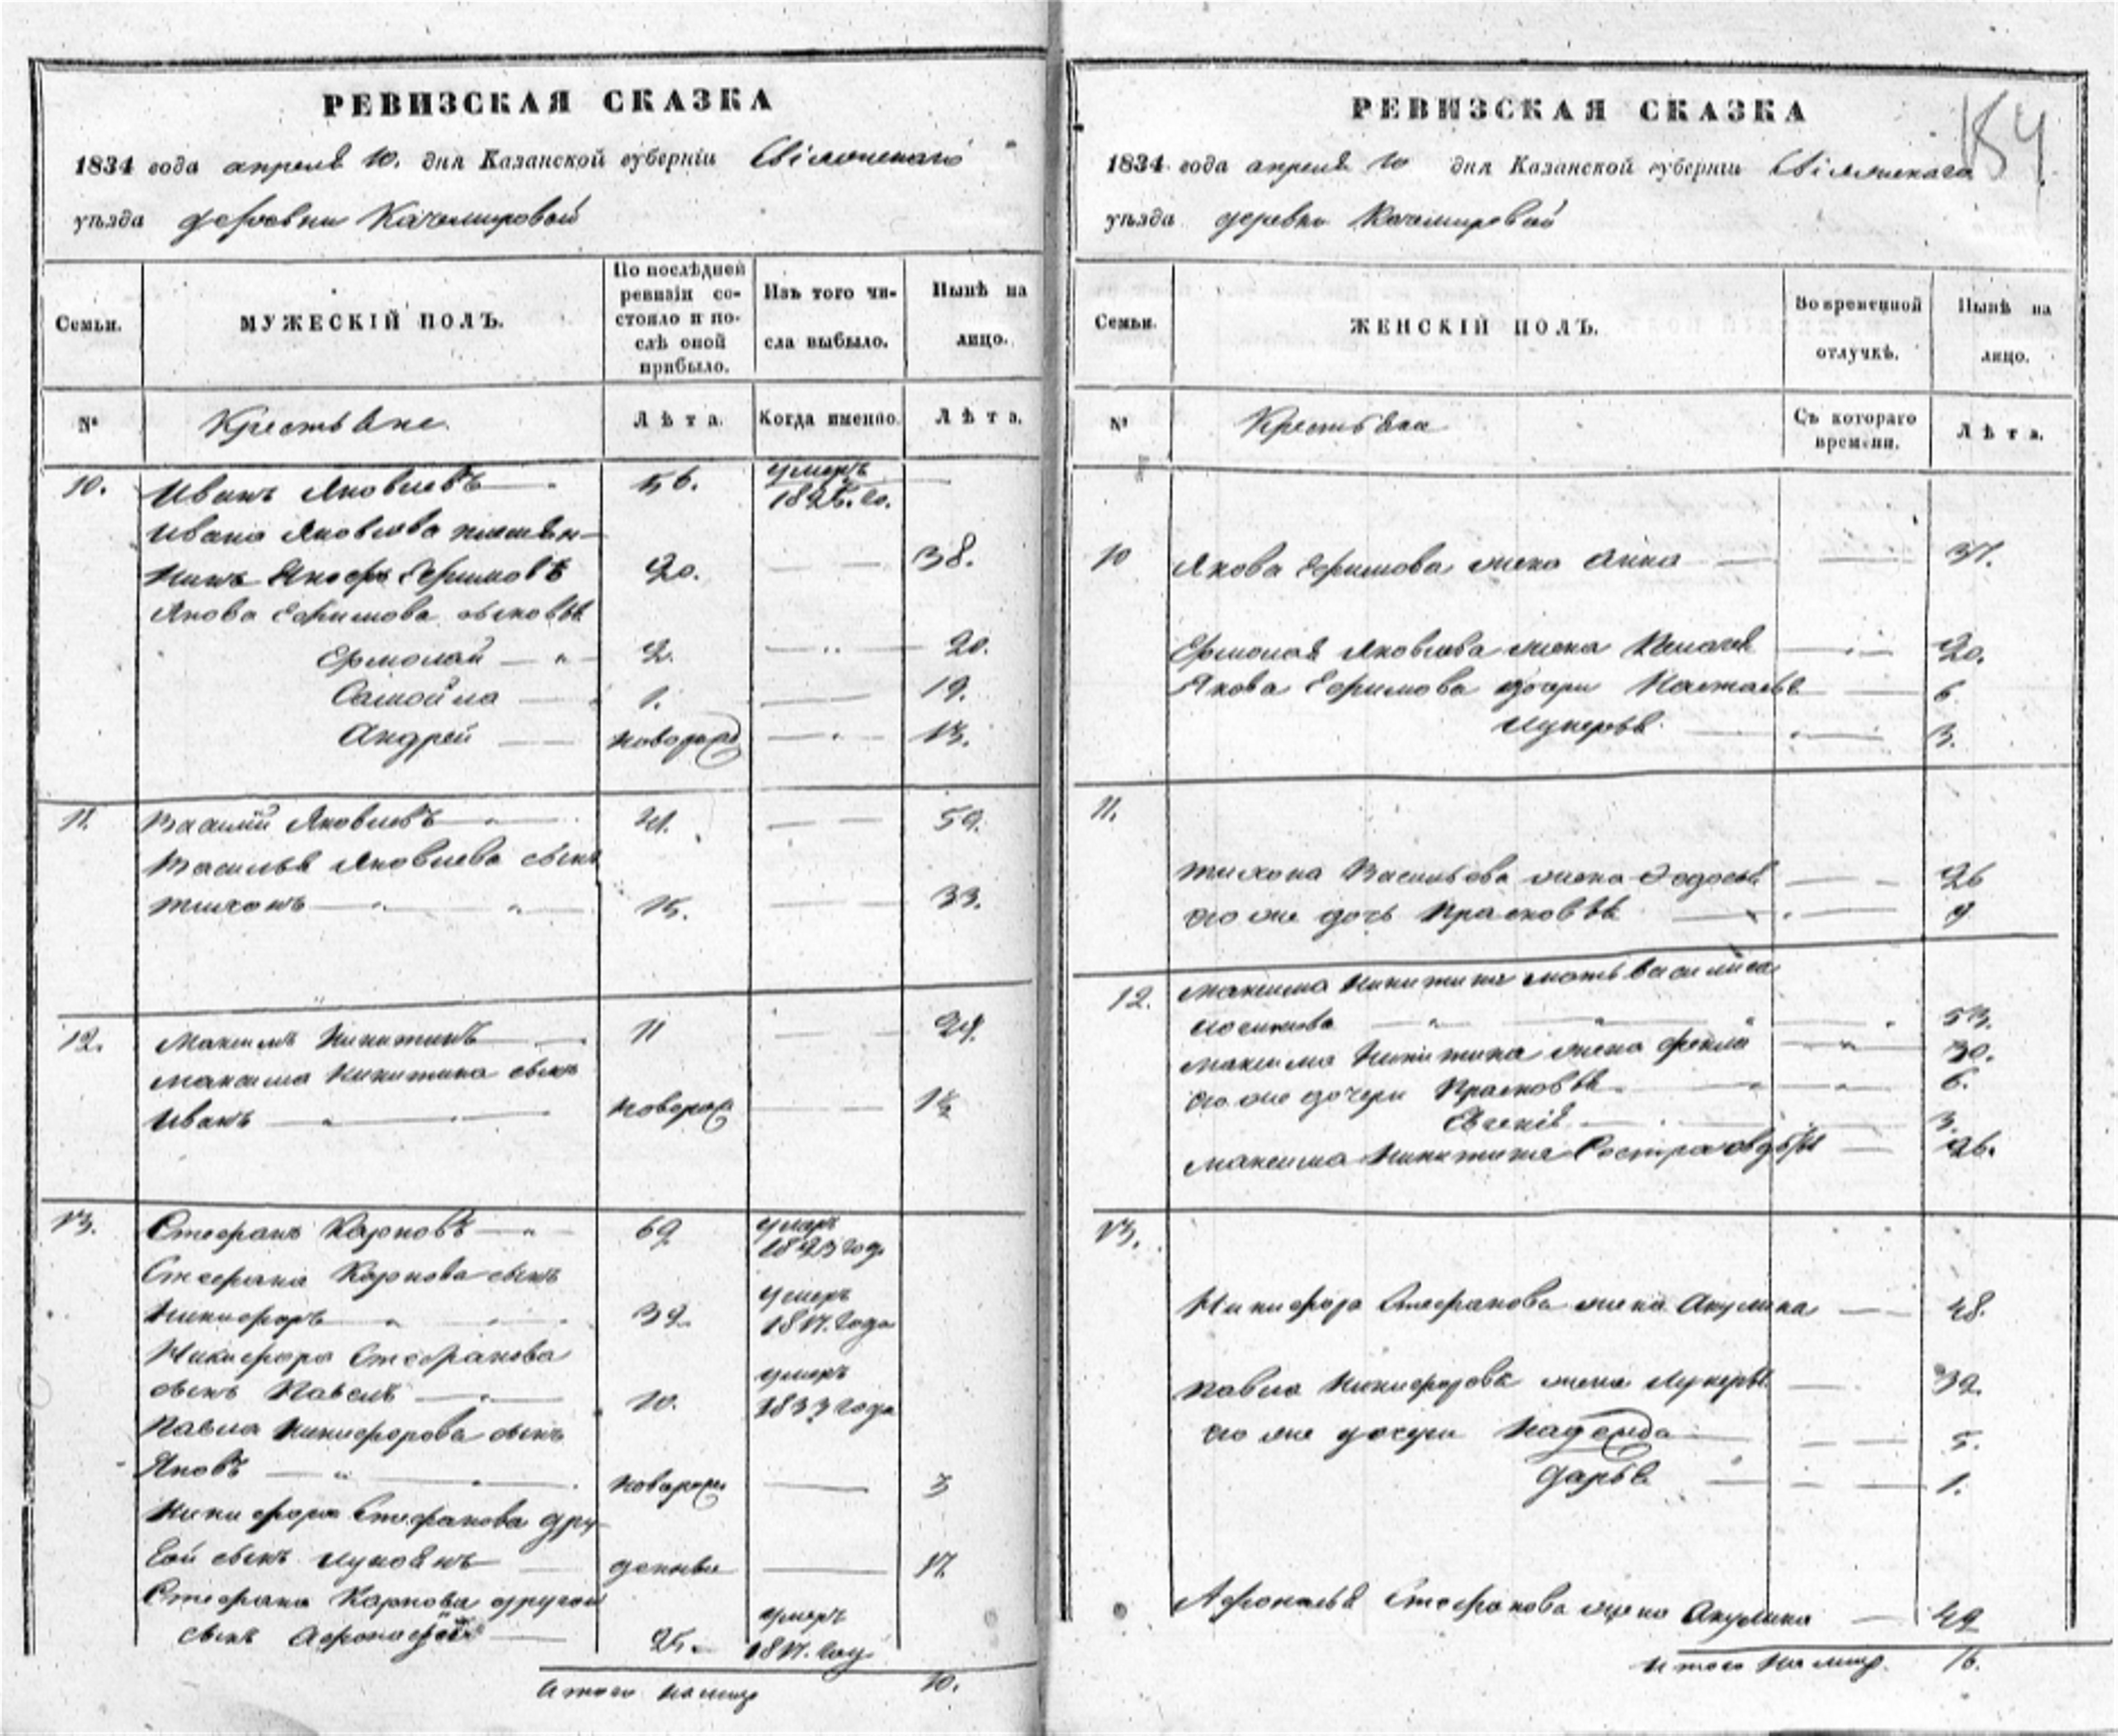 РЕВИЗСКАЯ СКАЗКА
1834 года апреля 10. дня Казанской губерніи
уѣзда деревни Качемировой
Семьи.
МУЖЕСКІЙ ПОЛЪ.
По послѣдней
ревизіи со-
стояло и по-
слѣ оной
прибыло.
Изъ того чи-
сла выбыло.
Нынѣ на
лицо.
№
Крестьяне.
Лѣта.
Когда именно.
Лѣта.
10. Иванъ Яковлевъ 56. умеръ
Ивана Яковлева племян-
никъ Ефимовъ 20. 38.
Якова Ефимова сыновья
Ермолай 2. 20.
Самойла 1. 19.
Андрей 13.
11. Василій Яковлевъ 41. 59.
Василья Яковлева сынъ
Тихонъ 15. 33.
12. Максимъ Никитинъ 11 29.
Максима Никитина сынъ
Иванъ новорож
13. Стефанъ Карповъ 69 умеръ
1823 год
Стефана Карпова сынъ
умеръ
Никифоръ 39 1817. года
Никифора Стефанова
умеръ
сынъ Павелъ 10. 1833 года
Павла Никифорова сынъ
Яковъ новорож 3
Никифора Стефанова дру-
гой сынъ Лукоянъ 17
Стефана Карпова другой
умеръ
сынъ Афонасей 25. 1817. год
Итого на лицо 10.
РЕВИЗСКАЯ СКАЗКА
184.
1834 года апреля 10 дня Казанской губерніи
уѣзда деревни Качемировой
Семьи.
ЖЕНСКІЙ ПОЛЪ.
Во временной
отлучкѣ.
Нынѣ на
лицо.
№
Крестьяне
Съ котораго
времени.
Лѣта.
10 Якова Ефимова жена Анна 37.
Ермолая Яковлева жена Пелагея 20.
Якова Ефимова дочери Настасья 6
Лукерья 3.
11.
Тихона Васильева жена Федосья 26
его же дочь Прасковья
12. Максима Никитина мать Василиса
Осипова 53.
Максима Никитина жена Фекла 30.
его же дочери Прасковья 6.
Евгенія 3.
Максима Никитина сестра Авдотья 26.
13.
Никифора Стефанова жена Акулина 48.
Павла Никифорова жена Лукерья 32.
его же дочери Надежда 5.
Дарья 1.
Афонасья Стефанова жена Акулина 49
Итого на лицо. 16.